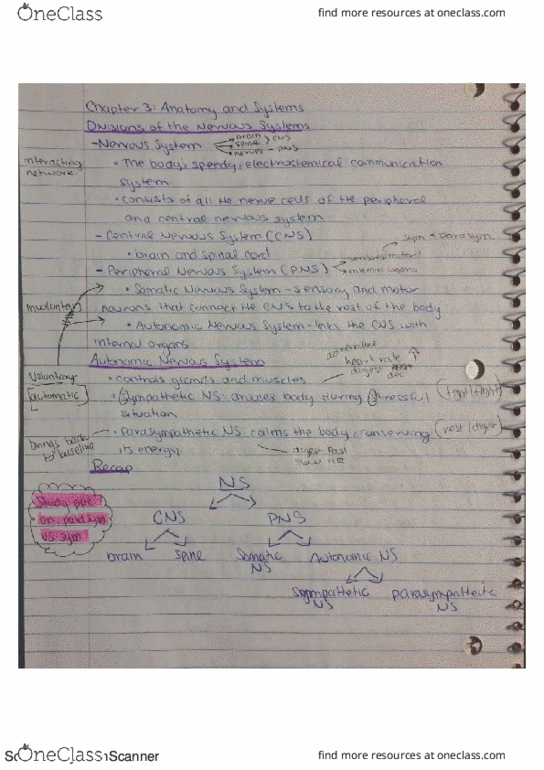 OneClass
find more resources at oneclass.com
Chapter 3: Anatomy and Systems
Divisions of the Nervous Systems
- Nervous System brain spine > CNS
nerves - PNS
interacting network
• The body's speedy, electrochemical communication
system
• consists of all the nerve cells of the peripheral
and central nervous system
- Central Nervous System (CNS)
sym + parasym.
• brain and spinal cord
- Peripheral Nervous System (PNS) sensory/motor
internal organs
• Somatic Nervous System - sensory and motor
neurons that connect the CNS to the rest of the body
• Autonomic Nervous System - links the CNS with
internal organs
Autonomic Nervous System
adrenaline
heart rate
digest dec
voluntary
automatic
• controls glands and muscles
• Sympathetic NS: arouses body during stressful (fight/flight)
situation
brings back to baseline
• parasympathetic NS: calms the body, conserving (rest/digest)
its energy
digest fast
slow H.R
Recap
NS
CNS PNS
Study pic
on parasym
vs sym
brain spine Somatic NS Autonomic NS
Sympathetic NS parasympathetic NS
OneClass
Scanner
find more resources at oneclass.com